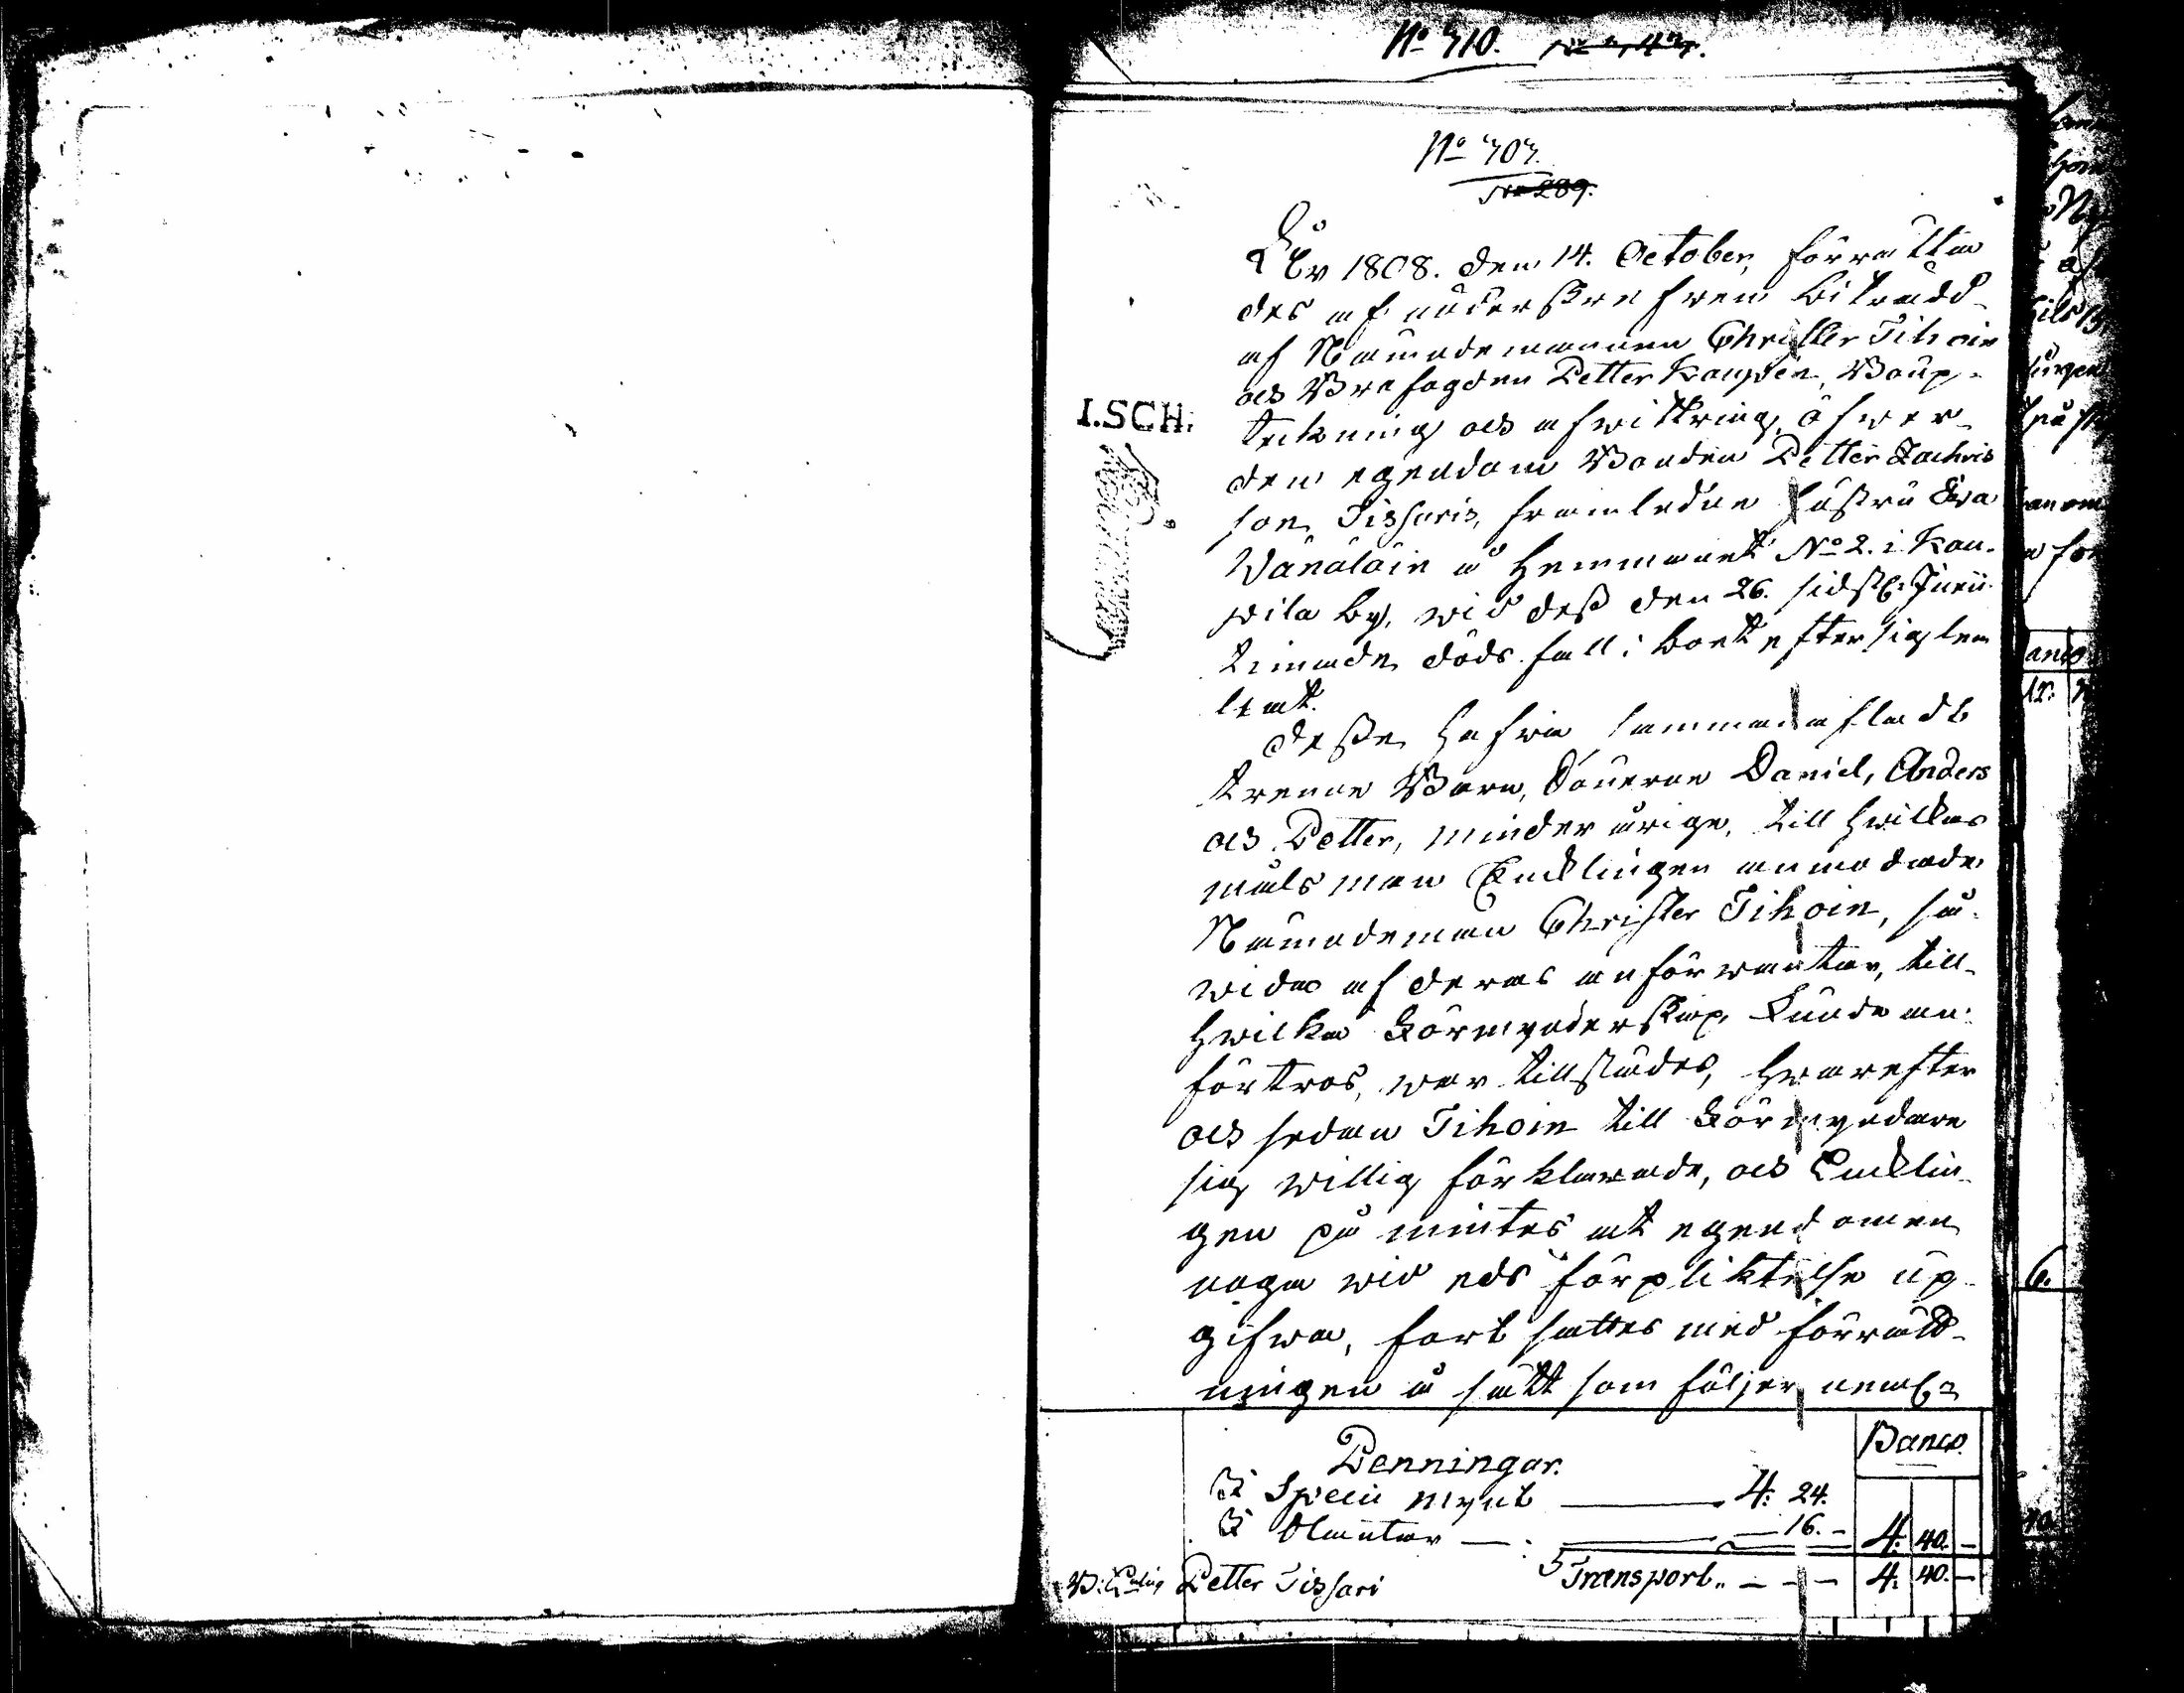 No 310.
No 303.
No 289.
År 1808. den 14. October, förrätta
des af underskrefwen biträdd
af Nämndemannen Christer Tihoin
och Brofogden Petter Kaupin, Boup-
tekning och afwittring, öfwer
den egendom Bonden Petter Zachris
son Tissaris, framledne hustru Eva
Wänäläin å Hemmanet No 2. i Kau-
wila by, wid dess den 26. sidstl: Junii
timade dödsfall i boet efter sig lem
nat.
Desse hafwa sammanaflade
trenne Barn, Sönerne Daniel, Anders
och Petter, minderårige, till hwilkas
målsman Encklingen anmodade
Nämndeman Christer Tihoin, så
wida af deras anförwanter, till
hwilka Förmynderskap kunde an-
förtros, war tillstädes, hwarefter
och sedan Tihoin till Förmyndare
sig willig förklarade, och Encklin-
gen påmintes at egendomen
noga wid eds förpliktelse up-
gifwa, fortsattes med förrätt-
ningen å sätt som följer, neml:n
I.SCH.
Penningar.
Banco.
I Specie mynt 4: 24.
I Plantar 16. - 4. 40. -
Petter Tissari
Transport. - - - 4. 40. -